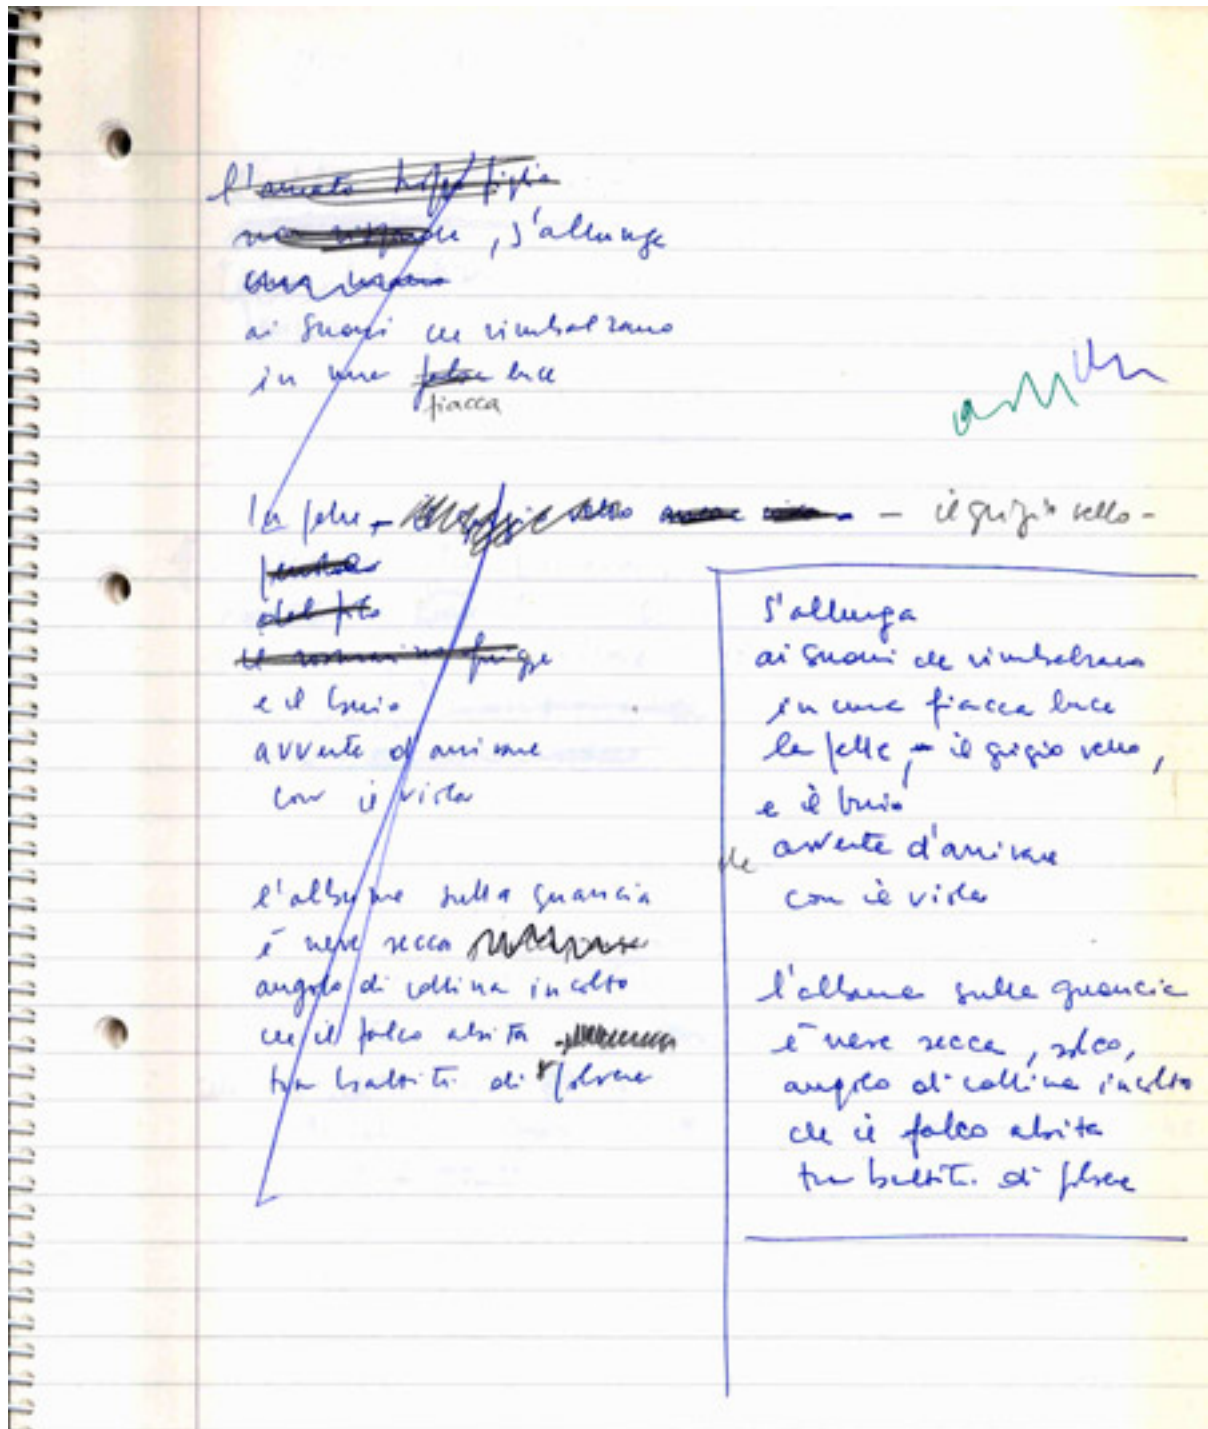 l'amato troppo figlio
non risponde, s'allunga
ai suoni che rimbalzano
in una false luce
fiacca
la pelle - - il grigio vello -
del filo
e il buio
avverte d'arrivare
con il viola
l'albume sulla guancia
è neve secca
angolo di collina incolto
che il falco abita
tra battiti di polvere
s'allunga
ai suoni che rimbalzano
in una fiacca luce
la pelle, - il grigio vello,
e il buio
che avverte d'arrivare
con il viola
l'albume sulla guancia
è neve secca, solco,
angolo di collina incolto
che il falco abita
tra battiti di polvere